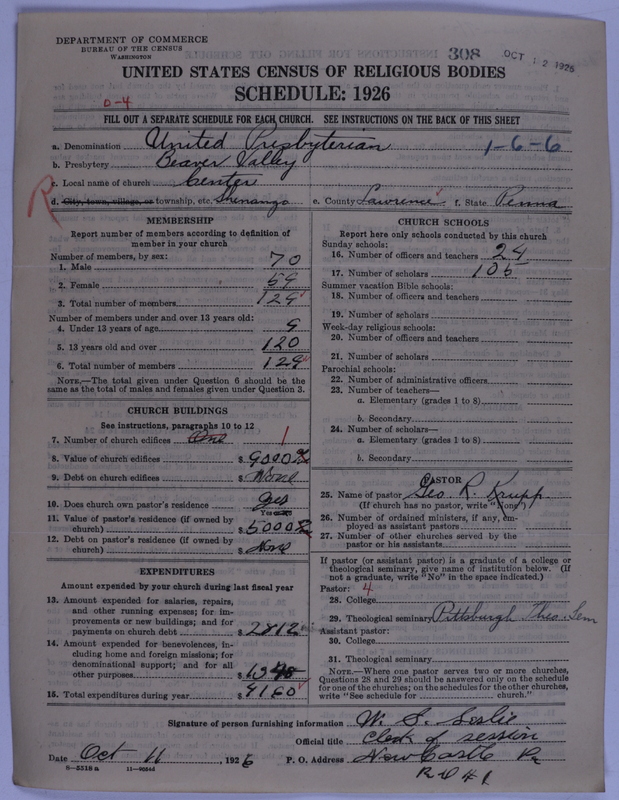 DEPARTMENT OF COMMERCE
BUREAU OF THE CENSUS
WASHINGTON
308
OCT 12 1926
UNITED STATES CENSUS OF RELIGIOUS BODIES
SCHEDULE: 1926
0-4
FILL OUT A SEPARATE SCHEDULE FOR EACH CHURCH. SEE INSTRUCTIONS ON THE BACK OF THIS SHEET
a. Denomination United Presbyterian 1-6-6
b. Presbytery Beaver Valley
c. Local name of church Center
R
d. City, town, village, or township, etc. Shenango e. County Lawrence f. State Penna
MEMBERSHIP
Report number of members according to definition of
member in your church
Number of members, by sex:
1. Male 70
2. Female 59
3. Total number of members 129
Number of members under and over 13 years old:
4. Under 13 years of age 9
5. 13 years old and over 120
6. Total number of members 129
NOTE.—The total given under Question 6 should be the
same as the total of males and females given under Question 3.
CHURCH BUILDINGS
See instructions, paragraphs 10 to 12
7. Number of church edifices One 1
8. Value of church edifices $ 9000
9. Debt on church edifices $ None
10. Does church own pastor's residence Yes
11. Value of pastor's residence (if owned by
church) $ 5000
12. Debt on pastor's residence (if owned by
church) $ None
EXPENDITURES
Amount expended by your church during last fiscal year
13. Amount expended for salaries, repairs,
and other running expenses; for im-
provements or new buildings; and for
payments on church debt $ 2812
14. Amount expended for benevolences, in-
cluding home and foreign missions; for
denominational support; and for all
other purposes $
15. Total expenditures during year $ 4160
CHURCH SCHOOLS
Report here only schools conducted by this church
Sunday schools:
16. Number of officers and teachers 24
17. Number of scholars 105
Summer vacation Bible schools:
18. Number of officers and teachers
19. Number of scholars
Week-day religious schools:
20. Number of officers and teachers
21. Number of scholars
Parochial schools:
22. Number of administrative officers
23. Number of teachers—
a. Elementary (grades 1 to 8)
b. Secondary
24. Number of scholars—
a. Elementary (grades 1 to 8)
b. Secondary
PASTOR
25. Name of pastor Geo. R. Krupp
(If church has no pastor, write "None")
26. Number of ordained ministers, if any, em-
ployed as assistant pastors
27. Number of other churches served by the
pastor or his assistants
If pastor (or assistant pastor) is a graduate of a college or
theological seminary, give name of institution below. (If
not a graduate, write "No" in the space indicated.)
Pastor: 4
28. College
29. Theological seminary Pittsburgh Theo. Sem
Assistant pastor:
30. College
31. Theological seminary
NOTE.—Where one pastor serves two or more churches,
Questions 28 and 29 should be answered only on the schedule
for one of the churches; on the schedules for the other churches,
write "See schedule for church."
Signature of person furnishing information W. S. Leslie
Official title Clerk of session
Date Oct 11, 1926 P. O. Address New Castle Pa
R D # 1
8-5318a